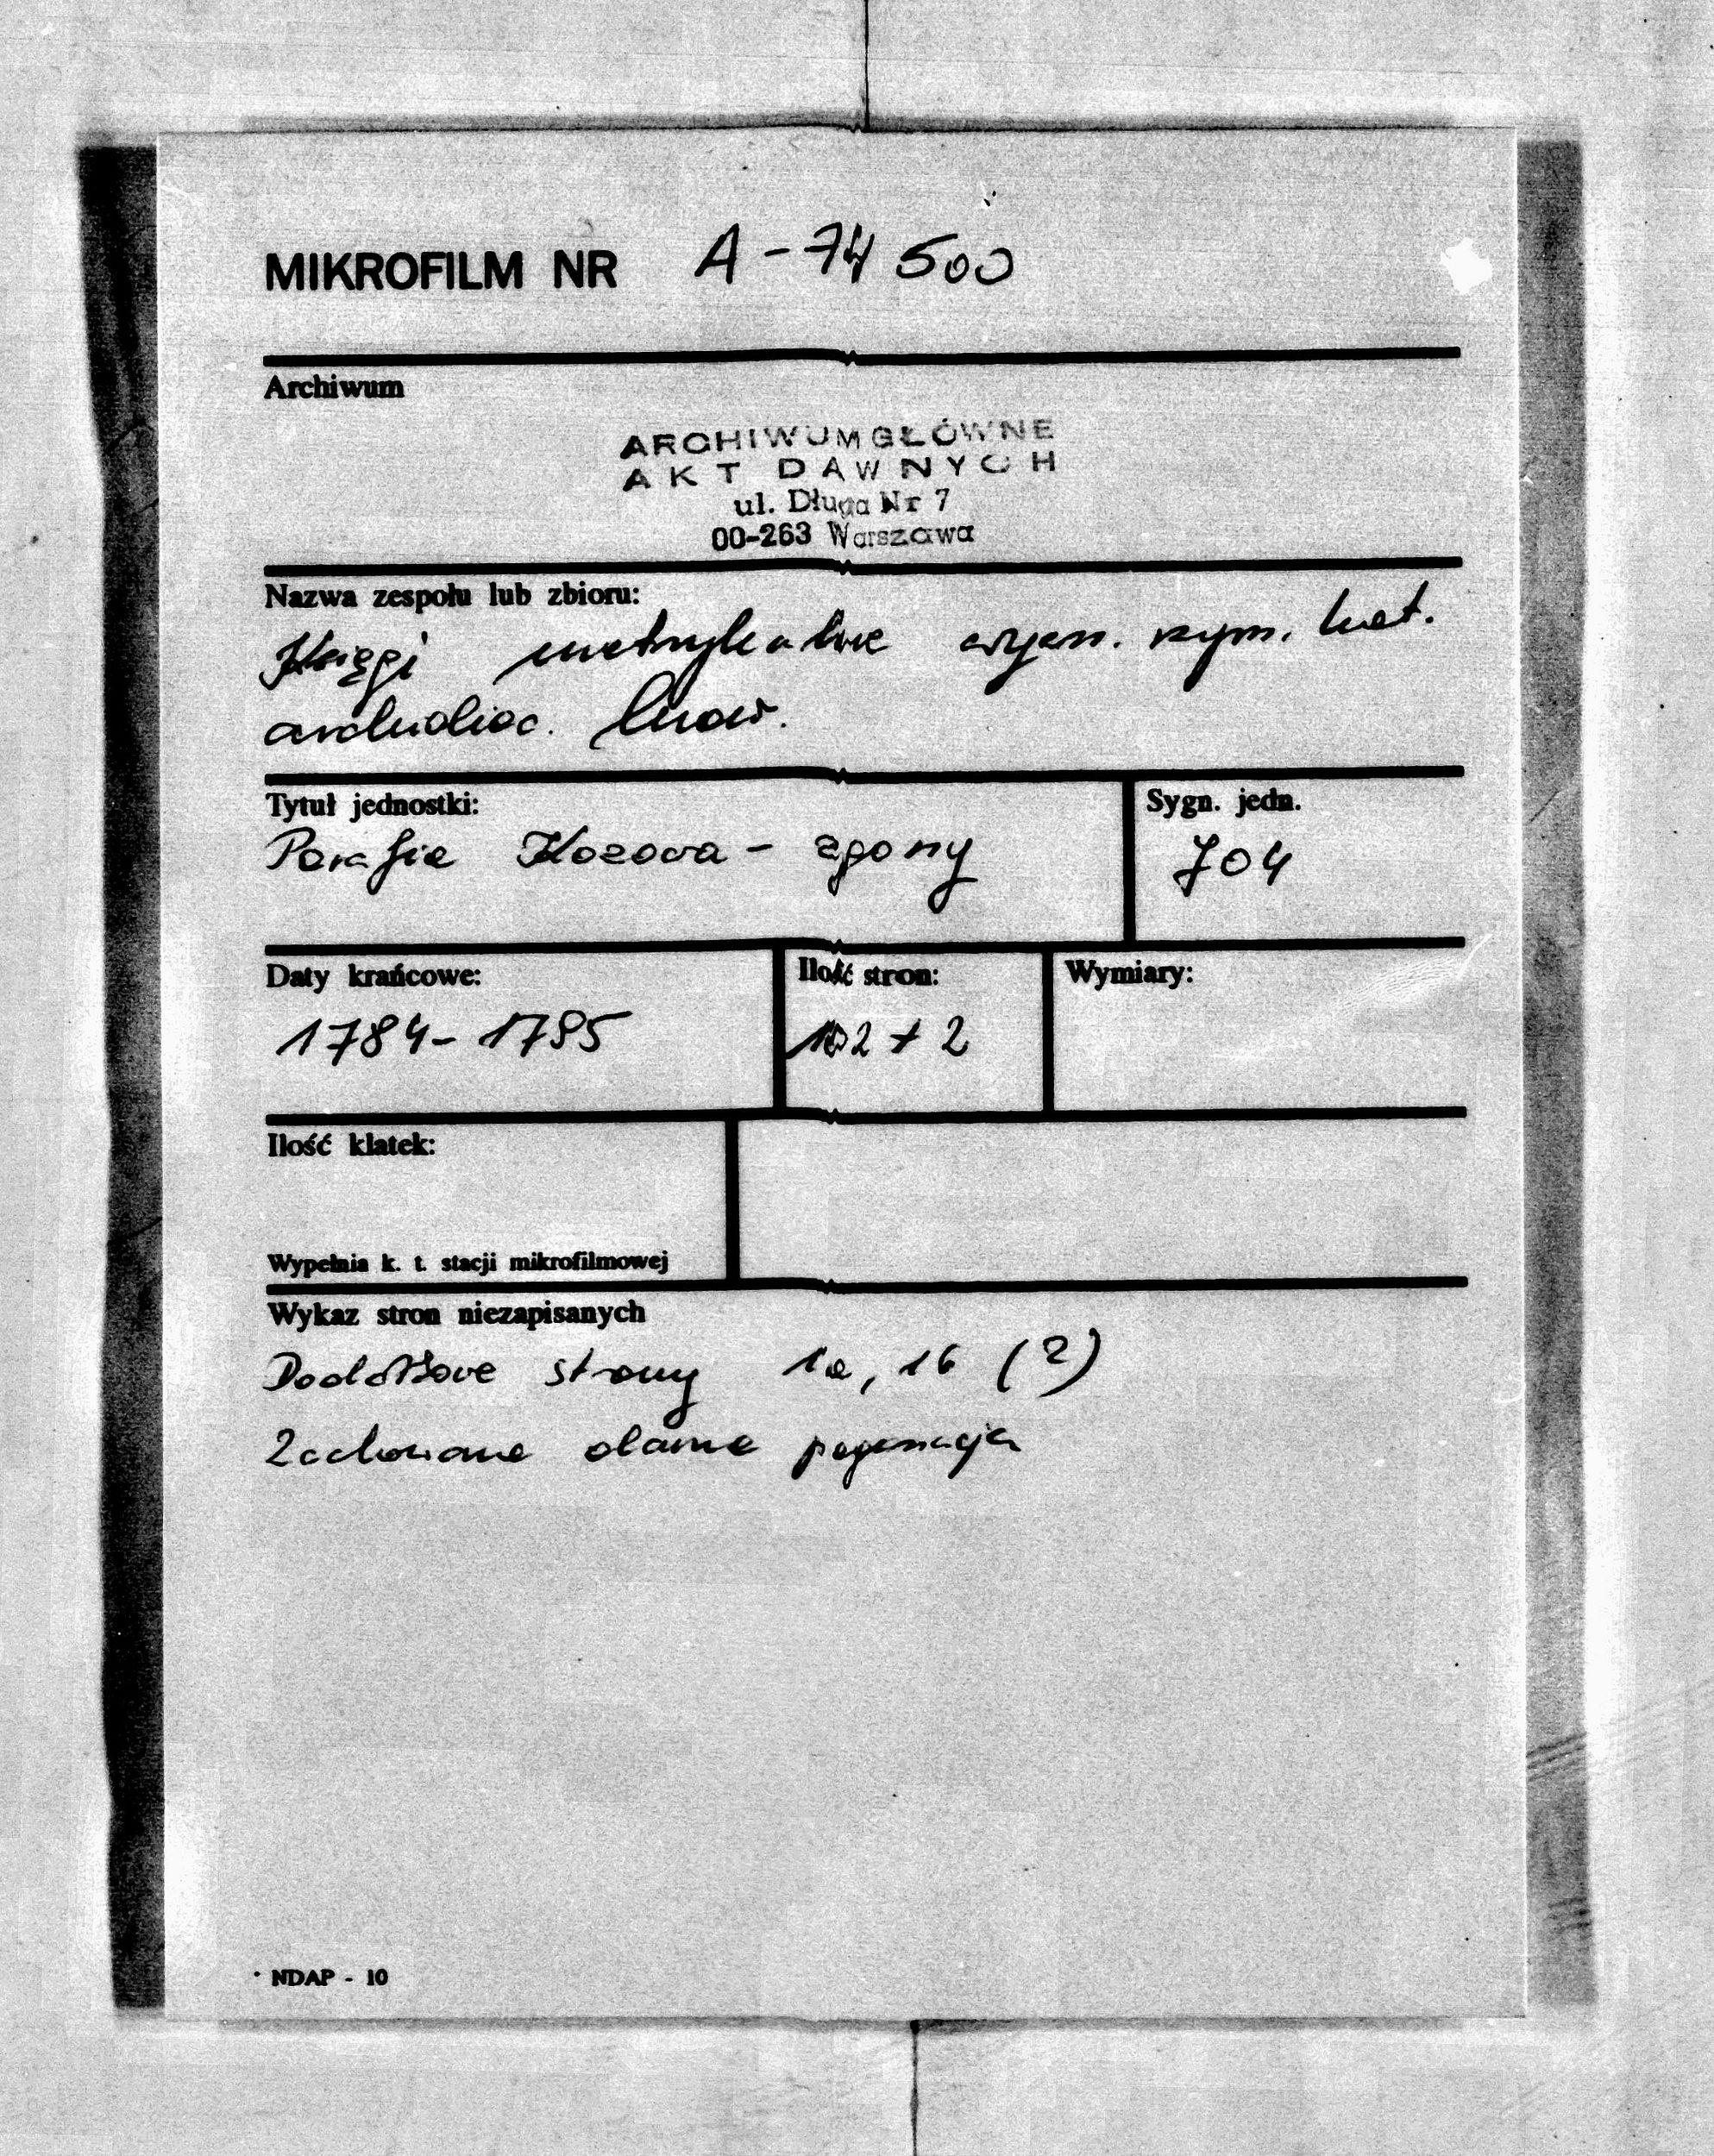 MIKROFILM NR A-74 500
Archiwum
ARCHIWUM GŁÓWNE
AKT DAWNYCH
ul. Długa Nr 7
00-263 Warszawa
Nazwa zespołu lub zbioru:
Księgi metrykalne wyzn. rzym. kat.
archidiec. lwow.
Tytuł jednostki:
Parafia Kozowa - zgony
Sygn. jedn.
704
Daty krańcowe:
1784-1795
Ilość stron:
102 + 2
Wymiary:
Ilość klatek:
Wypełnia k. t. stacji mikrofilmowej
Wykaz stron niezapisanych
Dodatkowe strony 1a, 1b (2)
Zachowano dawną paginację
NDAP - 10